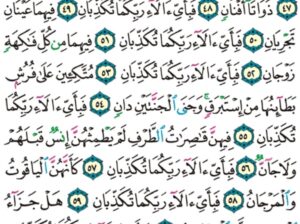 ٤٧ ذَوَاتَآ أَفْنَانٍ ٤٨ فَبِأَىِّ ءَالَآءِ رَبِّكُمَا تُكَذِّبَانِ ٤٩ فِيهِمَا عَيْنَانِ
تَجْرِيَانِ ٥٠ فَبِأَىِّ ءَالَآءِ رَبِّكُمَا تُكَذِّبَانِ ٥١ فِيهِمَا مِن كُلِّ فَٰكِهَةٍ
زَوْجَانِ ٥٢ فَبِأَىِّ ءَالَآءِ رَبِّكُمَا تُكَذِّبَانِ ٥٣ مُتَّكِـِٔينَ عَلَىٰ فُرُشٍۭ
بَطَآئِنُهَا مِنْ إِسْتَبْرَقٍ ۚ وَجَنَى ٱلْجَنَّتَيْنِ دَانٍ ٥٤ فَبِأَىِّ ءَالَآءِ رَبِّكُمَا
تُكَذِّبَانِ ٥٥ فِيهِنَّ قَٰصِرَٰتُ ٱلطَّرْفِ لَمْ يَطْمِثْهُنَّ إِنسٌ قَبْلَهُمْ
وَلَا جَآنٌّ ٥٦ فَبِأَىِّ ءَالَآءِ رَبِّكُمَا تُكَذِّبَانِ ٥٧ كَأَنَّهُنَّ ٱلْيَاقُوتُ
وَٱلْمَرْجَانُ ٥٨ فَبِأَىِّ ءَالَآءِ رَبِّكُمَا تُكَذِّبَانِ ٥٩ هَلْ جَزَآءُ